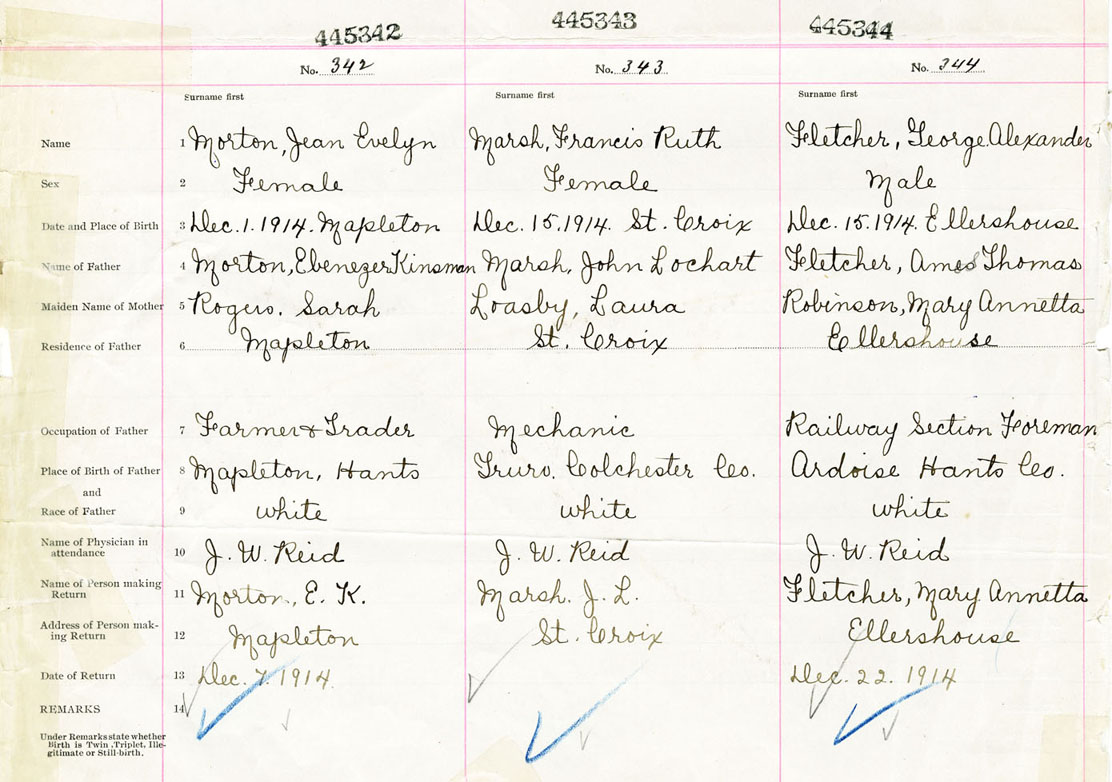 445342 445343 445344
No. 342 No. 343 No. 344
Surname first Surname first Surname first
Name 1 Morton, Jean Evelyn Marsh, Francis Ruth Fletcher, George Alexander
Sex 2 Female Female Male
Date and Place of Birth 3 Dec. 1. 1914. Mapleton Dec. 15. 1914. St. Croix Dec. 15. 1914. Ellershouse
Name of Father 4 Morton, Ebenezer Kinsman Marsh, John Lochart Fletcher, Amos Thomas
Maiden Name of Mother 5 Rogers. Sarah Loasby, Laura Robinson, Mary Annetta
Residence of Father 6 Mapleton St. Croix Ellershouse
Occupation of Father 7 Farmer & Trader Mechanic Railway Section Foreman
Place of Birth of Father 8 Mapleton, Hants Truro. Colchester Co. Ardoise Hants Co.
and
Race of Father 9 white white white
Name of Physician in
attendance 10 J. W. Reid J. W. Reid J. W. Reid
Name of Person making
Return 11 Morton, E. K. Marsh. J. L. Fletcher, Mary Annetta
Address of Person mak-
ing Return 12 Mapleton St. Croix Ellershouse
Date of Return 13 Dec. 7. 1914. Dec. 22. 1914
REMARKS 14
Under Remarks state whether
Birth is Twin, Triplet, Ille-
gitimate or Still-birth.